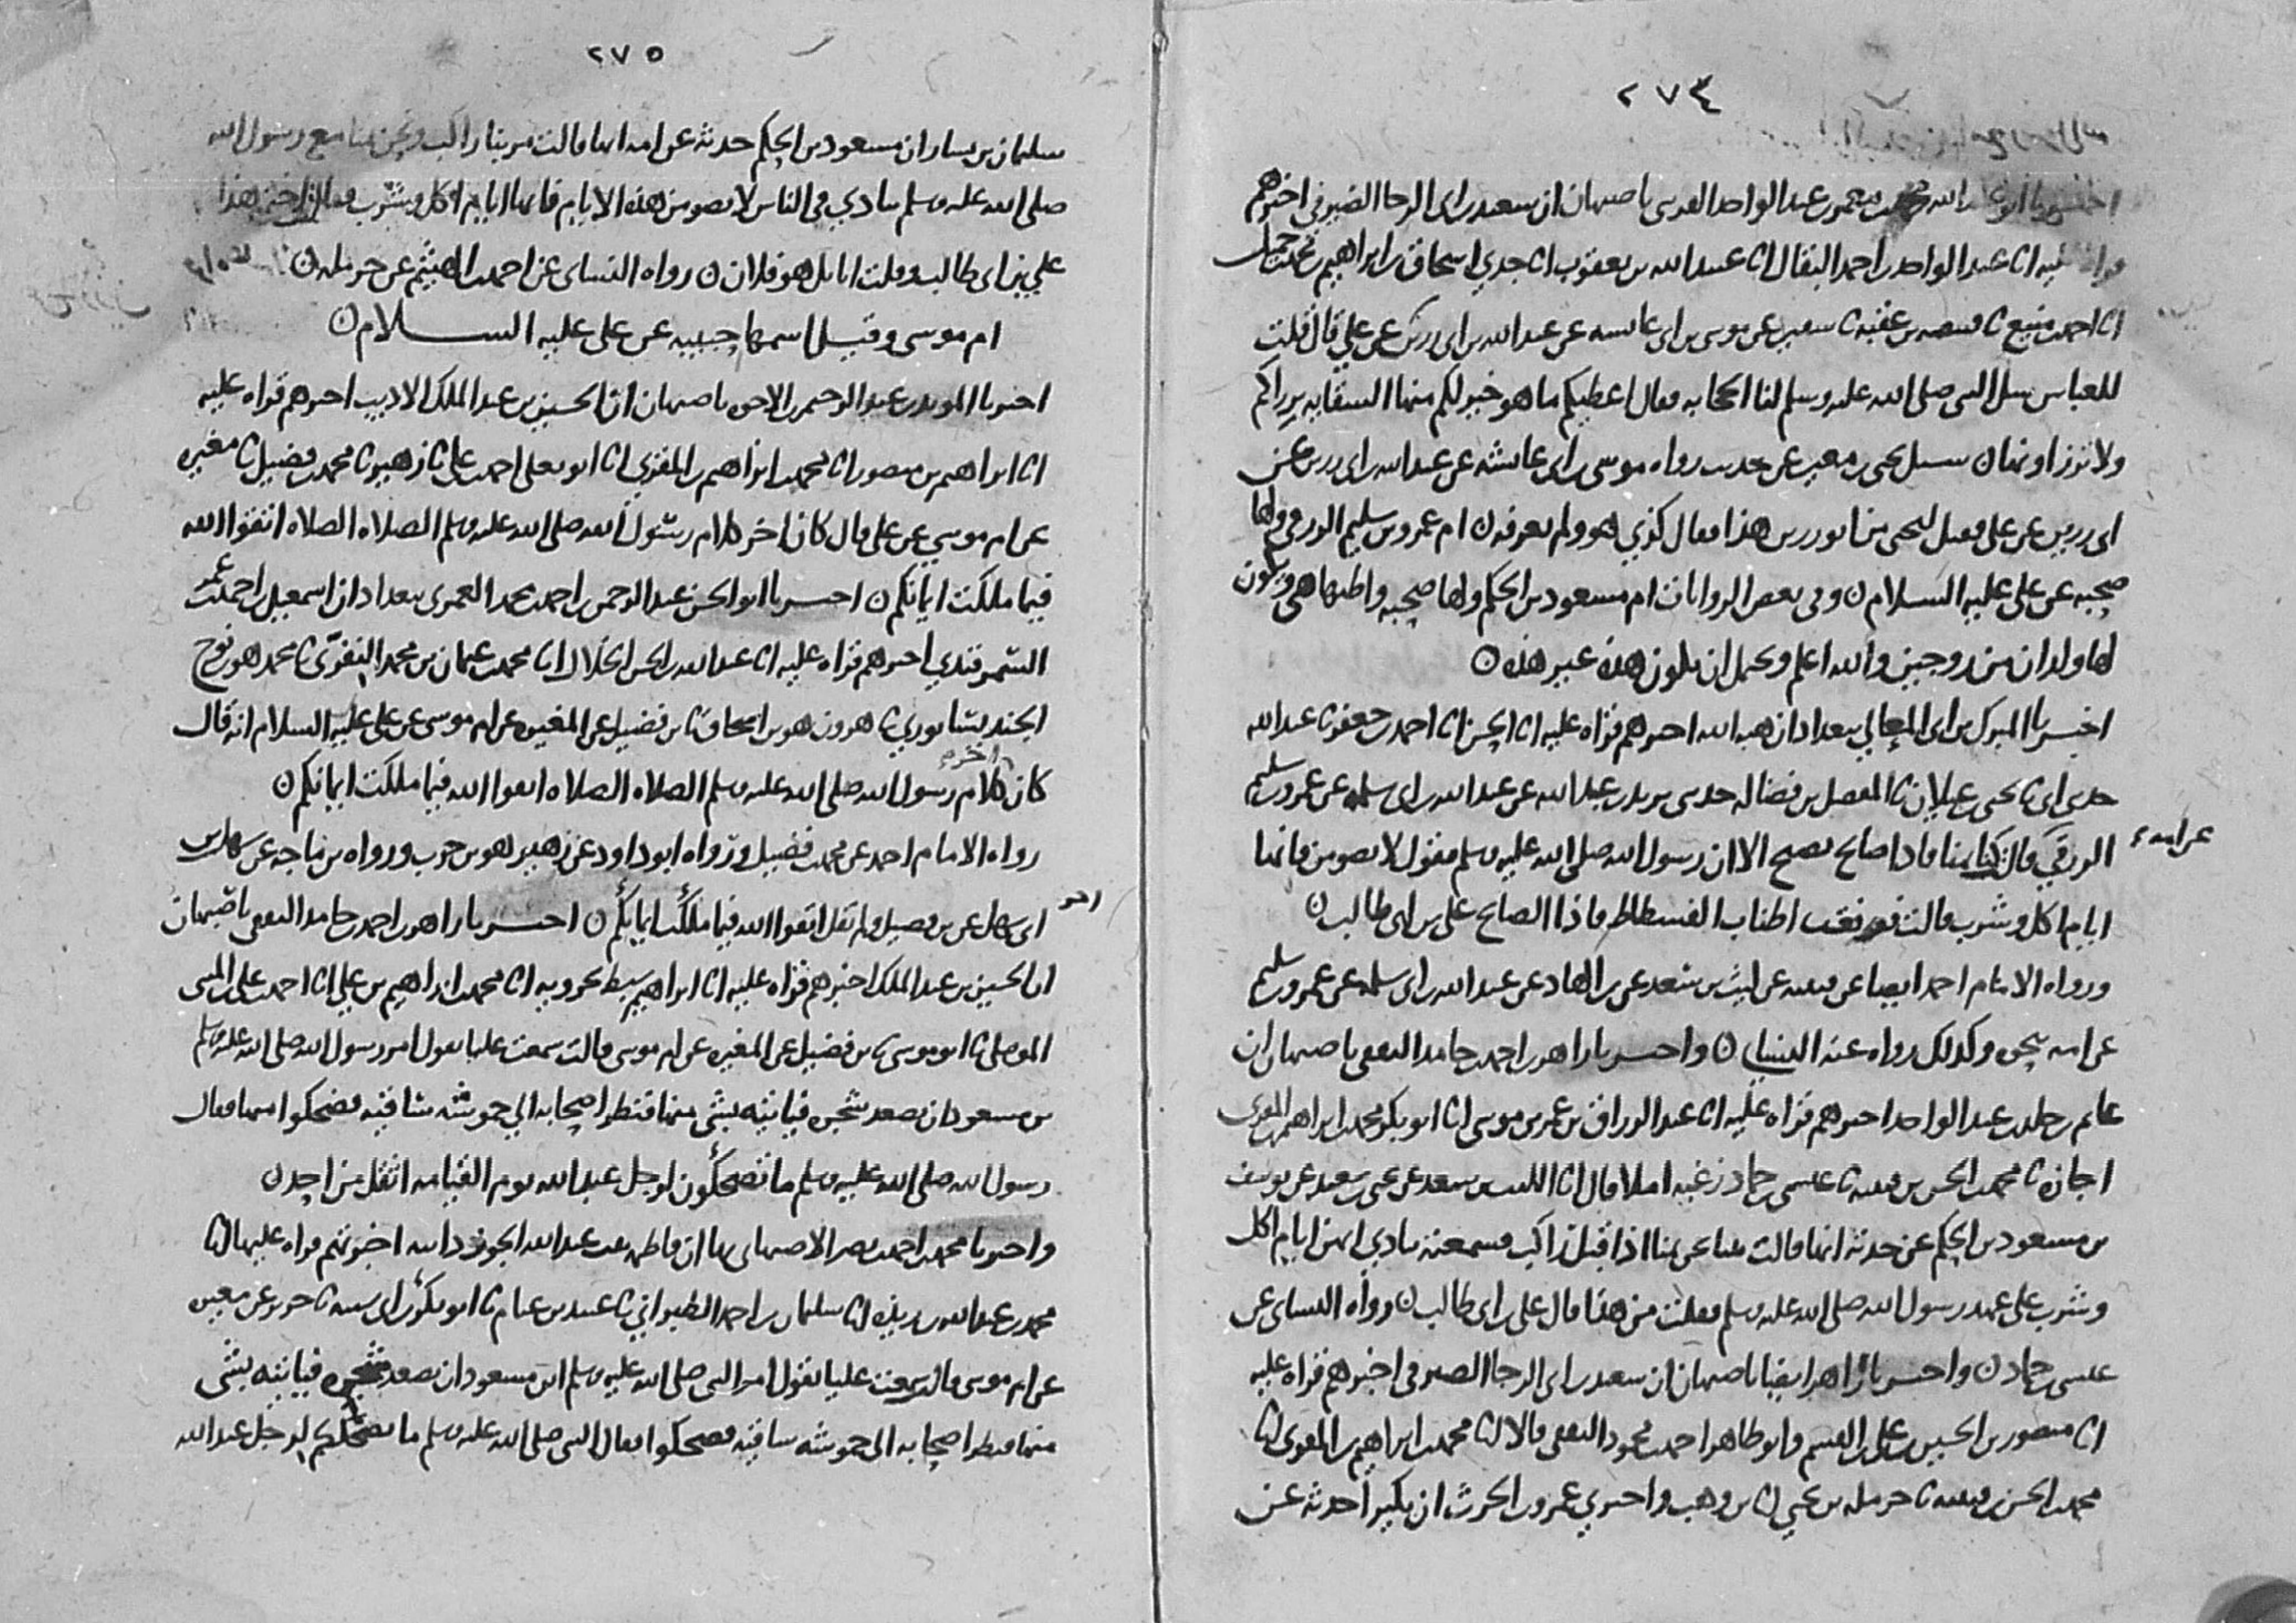 ٢٧٤
اخبرنا ابو عبد الله محمد بن معمر بن عبد الواحد القرشي باصبهان ان سعيد بن ابي الرجا الصيرفي اخبرهم
قراة عليه انا عبد الواحد بن احمد البقال انا عبيد الله بن يعقوب انا جدي اسحاق بن ابراهيم بن محمد بن جميل
انا احمد بن منيع نا قبيصه بن عقبه نا سفين عن موسى بن ابي عايشه عن عبد الله بن ابي رزين عن علي قال قلت
للعباس سل النبي صلى الله عليه وسلم لنا الحجابه فقال اعطيكم ما هو خير لكم منها السقايه
ولا سيل يحيى بن معين عن حديث رواه موسى بن ابي عائشه عن عبد الله بن ابي رزين عن
ابي رزين عن علي فقيل ليحيى من ابو رزين هذا فقال كذي هو ولم يعرفه ن ام عمرو بن سليم الزرقي ولها
صحبه عن علي عليه السلام ن وفي بعض الروايات ام مسعود بن الحكم ولها صحبه واظنها هي ويكون
لها ولدان من زوجين والله اعلم ويحمل ان يكون هذه غير هذه ن
اخبرنا المبرك بن ابي المعالي ببغداد ان هبه الله اخبرهم قراة عليه انا الحسن انا احمد بن جعفر نا عبد الله
حدثني ابي نا يحيى بن غيلان نا المفضل بن فضاله حدثني يزيد بن عبد الله عن عبد الله بن ابي سلمه عن عمرو بن سليم
الزرقي عن امه قالت كنا بمنا فاذا صايح يصيح الا ان رسول الله صلى الله عليه وسلم يقول لا تصومن فانها
ايام اكل وشرب قالت فرفعت اطناب الفسطاط فاذا الصايح علي بن ابي طالب ن
ورواه الامام احمد ايضا عن قتيبه عن ليث بن سعد عن بن الهاد عن عبد الله بن ابي سلمه عن عمرو بن سليم
عن امه بنحوه وكذلك رواه عنه النسائي ن واخبرنا زاهر بن احمد بن حامد الثقفي باصبهان ان
غانم بن خلد بن عبد الواحد اخبرهم قراة عليه انا عبد الرزاق بن عمر بن موسى انا ابو بكر محمد بن ابراهيم المقري
اجازة نا محمد بن الحسن بن قتيبه نا عيسى بن حماد زغبه املا قال انا الليث بن سعد عن يحيى بن سعيد عن يوسف
بن مسعود بن الحكم عن حدثه انها قالت بينا نحن بمنا اذ اقبل راكب فسمعته ينادي انهن ايام اكل
وشرب على عهد رسول الله صلى الله عليه وسلم فقلت من هذا قال علي بن ابي طالب ن رواه النسائي عن
عيسى بن حماد ن واخبرنا زاهر ايضا باصبهان ان سعيد بن ابي الرجا الصيرفي اخبرهم قراة عليه
انا منصور بن الحسين بن علي بن القسم وابو طاهر احمد بن محمود الثقفي قالا انا محمد بن ابراهيم بن المقري انا
محمد بن الحسن بن قتيبه نا حرمله بن يحيى انا بن وهب واخبرني عمرو بن الحرث ان بكيرا حدثه عن
٢٧٥
سليمان بن يسار ان مسعود بن الحكم حدثه عن امه انها قالت مر بنا راكب ونحن بمنا مع رسول الله
صلى الله عليه وسلم ينادي في الناس لا تصومن هذه الايام فانها ايام اكل وشرب فقالت اختي هذا
علي بن ابي طالب وقلت انا بل هو فلان ن رواه النسائي عن احمد بن الهيثم عن حرمله ن
ام موسى وقيل اسمها حبيبه عن علي عليه السلام ن
اخبرنا المويد بن عبد الرحيم بن الاخوه باصبهان ان الحسين بن عبد الملك الاديب اخبرهم قراة عليه
انا ابراهيم بن منصور انا محمد بن ابراهيم بن المقري انا ابو يعلى احمد بن علي نا زهير نا محمد بن فضيل نا مغيره
عن ام موسى عن علي قال كان اخر كلام رسول الله صلى الله عليه وسلم الصلاه الصلاه اتقوا الله
فيما ملكت ايمانكم ن اخبرنا ابو الحسن عبد الرحمن بن احمد بن محمد العمري ببغداد ان اسمعيل بن احمد بن عمر
السمرقندي اخبرهم قراة عليه انا عبد الله بن الحسن الخلال انا محمد بن عثمان بن محمد النفري نا محمد هو بن نوح
الجنديسابوري نا هرون هو بن اسحاق نا بن فضيل عن المغيره عن ام موسى عن علي عليه السلام انه قال
كان اخر كلام رسول الله صلى الله عليه وسلم الصلاه الصلاه اتقوا الله فيما ملكت ايمانكم ن
رواه الامام احمد عن محمد بن فضيل ورواه ابو داود عن زهير هو بن حرب ورواه بن ماجه عن سهل بن
ابي سهل عن بن فضيل ولم يقل اتقوا الله فيما ملكت ايمانكم ن اخبرنا زاهر بن احمد بن حامد الثقفي باصبهان
ان الحسين بن عبد الملك اخبرهم قراة عليه انا ابراهيم سبط بحرويه انا محمد بن ابراهيم بن علي انا احمد بن علي بن المثنى
الموصلي نا ابو موسى نا بن فضيل عن المغيره عن ام موسى قالت سمعت عليا يقول امر رسول الله صلى الله عليه وسلم
بن مسعود ان يصعد شجره فياتيه بشي منها فنظر اصحابه الى حموشه ساقيه فضحكوا منها فقال
رسول الله صلى الله عليه وسلم ما تضحكون لرجل عبد الله يوم القيامه اثقل من احد ن
واخبرنا محمد بن احمد بن نصر الاصبهاني بها ان فاطمه بنت عبد الله الجوزدانيه اخبرتهم قراة عليها انا
محمد بن عبد الله بن ريذه انا سليمان بن احمد الطبراني نا عبيد بن غنام نا ابو بكر بن ابي شيبه نا جرير عن مغيره
عن ام موسى قالت سمعت عليا يقول امر النبي صلى الله عليه وسلم ابن مسعود ان يصعد شجره فياتيه بشي
منها فنظر اصحابه الى حموشه ساقيه فضحكوا فقال النبي صلى الله عليه وسلم ما يضحككم لرجل عبد الله